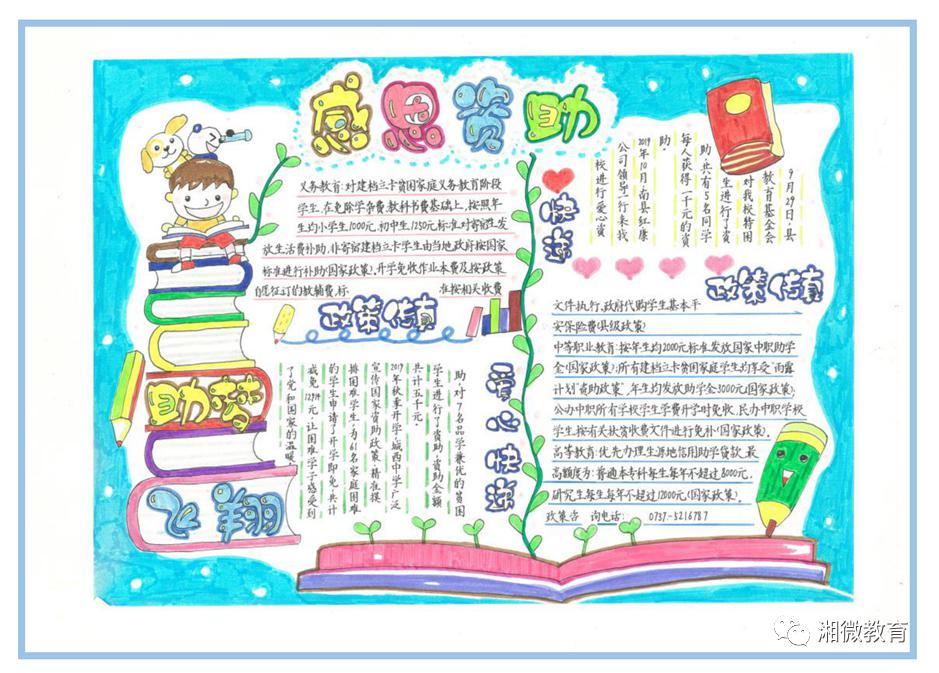 感恩资助
义务教育:对建档立卡贫困家庭义务教育阶段
学生,在免除学杂费、教科书费基础上,按照年
生均小学生1000元,初中生1250元标准对寄宿生发
放生活费补助,非寄宿建档立卡学生由当地政府按国家
标准进行补助(国家政策),开学免收作业本费及按政策
自愿征订的教辅费,标
准按相关收费
政策传真
文件执行,政府代购学生基本平
安保险费(县级政策)
中等职业教育:按年生均2000元标准发放国家中职助学
金(国家政策);所有建档立卡贫困家庭学生均享受"雨露
计划"资助政策,年生均发放助学金3000元(国家政策);
公办中职所有学校学生学费开学时免收,民办中职学校
学生按有关扶贫收费文件进行免补(国家政策)。
高等教育:优先办理生源地信用助学贷款,最
高额度为:普通本专科每生每年不超过8000元,
研究生每生每年不超过12000元(国家政策)。
政策咨 询电话: 0737-5216787
政策传真
快递
9月29日,县
教育基金会
对我校特困
生进行了资
助,共有5名同学
每人获得一千元的资
助。
2019年10月,南县红康
公司领导一行来我
校进行爱心资
爱心快递
助,对7名品学兼优的贫困
学生进行了资助,资助金额
共计五千元。
2019年秋季开学,城西中学广泛
宣传国家资助政策,精准摸
排困难学生,为61名家庭困难
的学生申请了开学即免,共计
减免12914元,让困难学子感受到
了党和国家的温暖。
助梦
飞翔
湘微教育